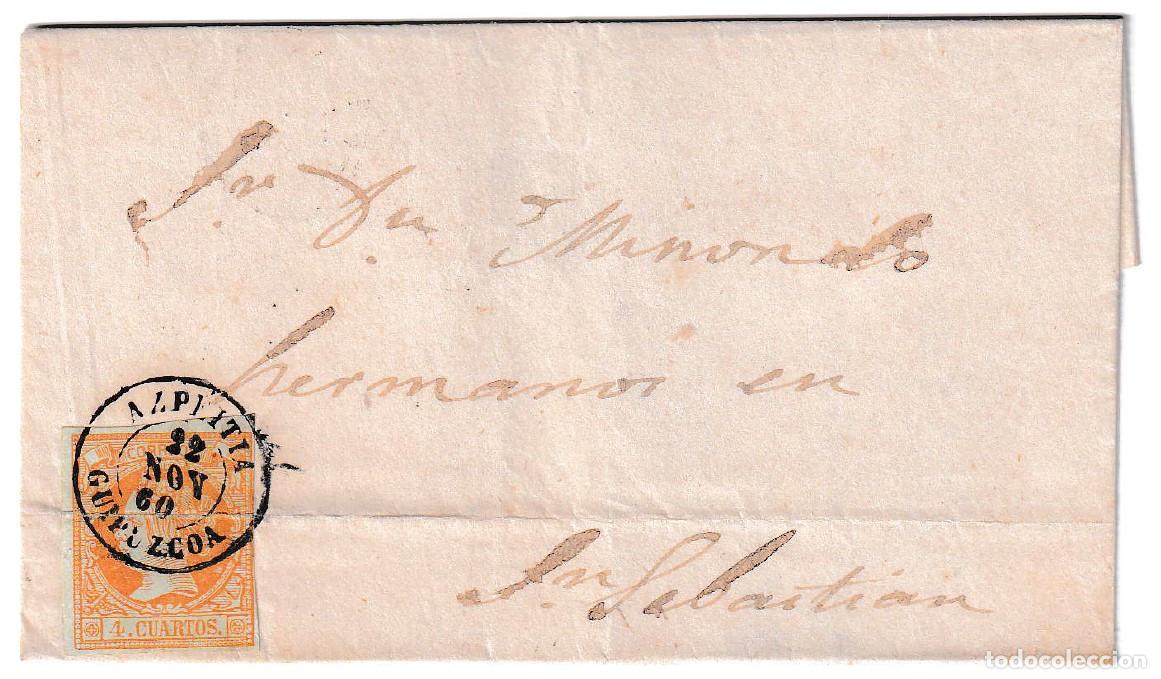 Sr. Dn Minondo
hermanos en
Sn Sebastian
AZPEITIA
22
NOV
60
GUIPUZCOA
CORREOS
4. CUARTOS.
todocoleccion